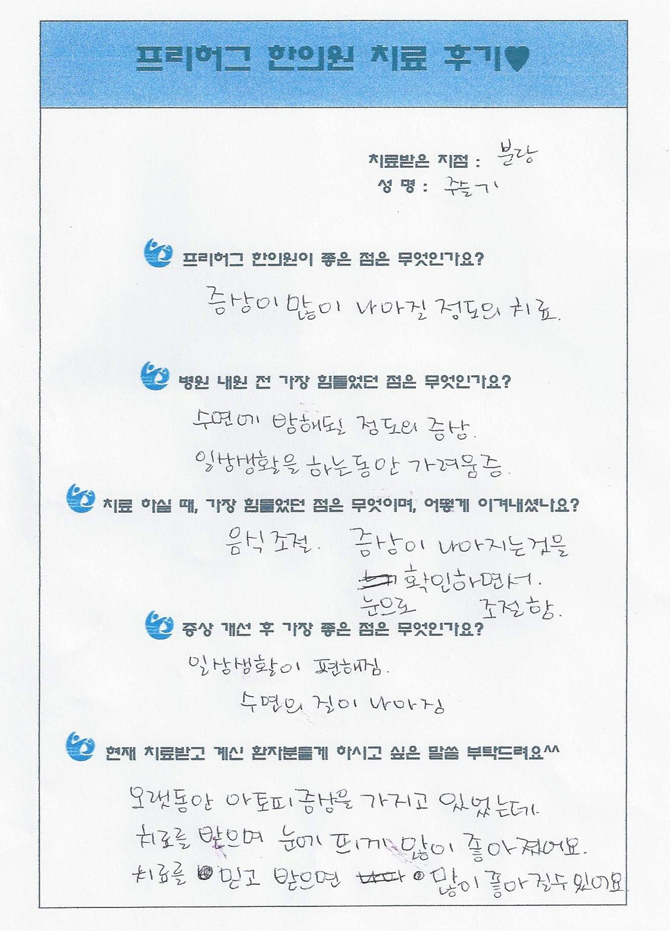 프리허그 한의원 치료 후기♥
치료받은 지점 : 분당
성 명 : 주슬기
프리허그 한의원이 좋은 점은 무엇인가요?
증상이 많이 나아질 정도의 치료.
병원 내원 전 가장 힘들었던 점은 무엇인가요?
수면에 방해될 정도의 증상.
일상생활을 하는동안 가려움증.
치료 하실 때, 가장 힘들었던 점은 무엇이며, 어떻게 이겨내셨나요?
음식조절. 증상이 나아지는것을
확인하면서.
눈으로 조절함.
증상 개선 후 가장 좋은 점은 무엇인가요?
일상생활이 편해짐.
수면의 질이 나아짐
현재 치료받고 계신 환자분들게 하시고 싶은 말씀 부탁드려요^^
오랫동안 아토피증상을 가지고 있었는데.
치료를 받으며 눈에 띄게 많이 좋아졌어요.
치료를 믿고 받으면 많이 좋아질수있어요